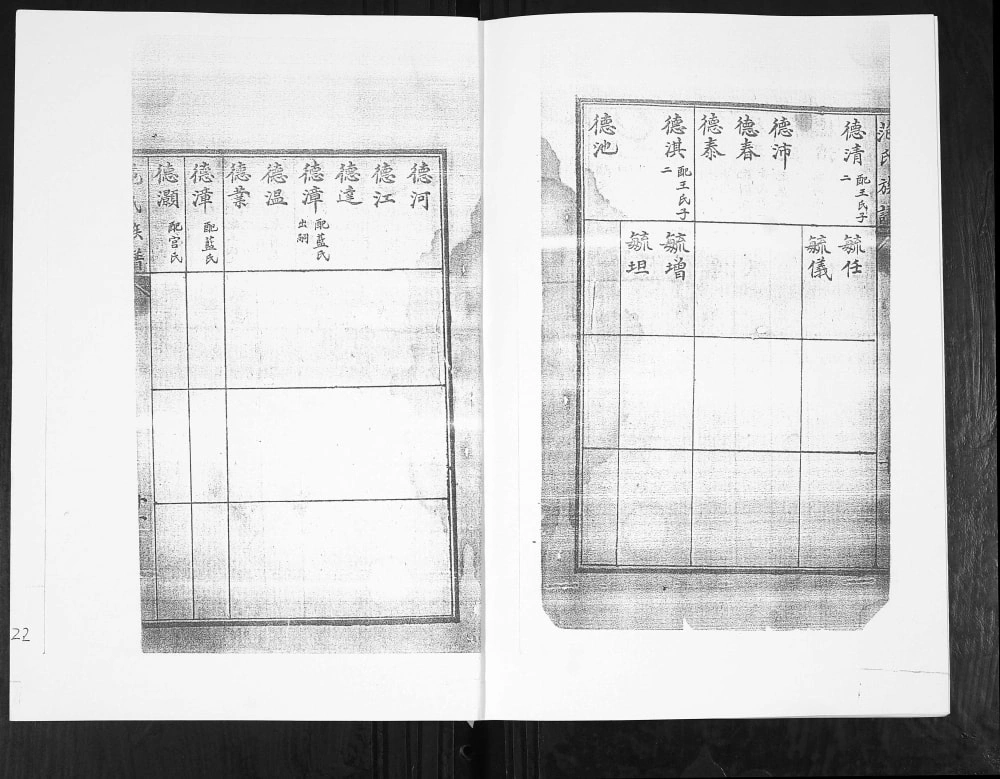 范氏族譜
德清 配王氏子二
德沛
德春
德泰
德淇 配王氏子二
德池
毓任
毓儀
毓增
毓坦
德河
德江
德達
德漳 配藍氏 出嗣
德温
德業
德漳 配藍氏
德灝 配宮氏
氏族譜
22